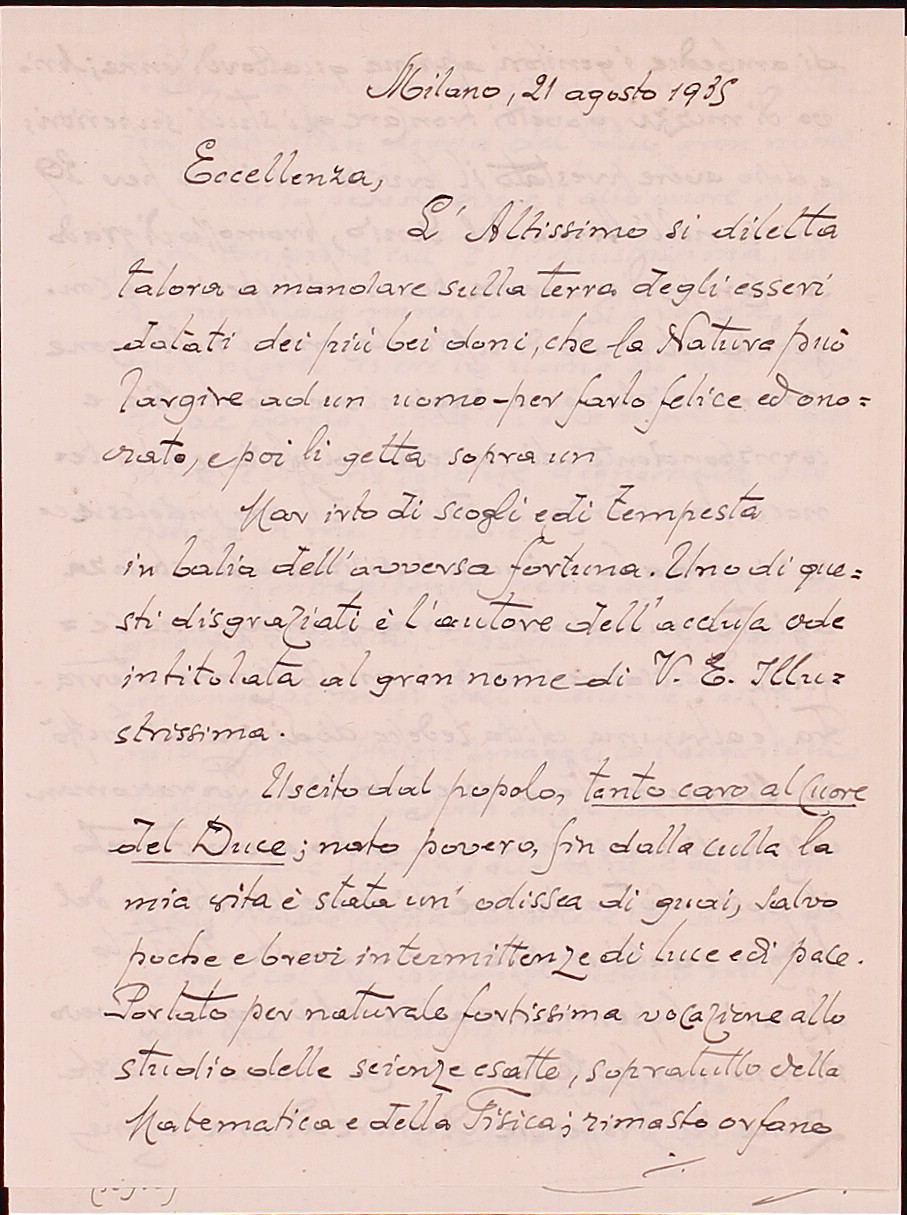 Milano, 21 agosto 1935
Eccellenza,
L'Altissimo si diletta
talora a mandare sulla terra degli esseri
dotati dei più bei doni, che la Natura può
largire ad un uomo - per farlo felice ed ono=
rato, e poi li getta sopra un
Mar irto di scogli e di tempesta
in balia dell'avversa fortuna. Uno di que=
sti disgraziati è l'autore dell'acclusa ode
intitolata al gran nome di V. E. Illu=
strissima.
Uscito dal popolo, tanto caro al Cuore
del Duce; nato povero, fin dalla culla la
mia vita è stata un'odissea di guai, salvo
poche e brevi intermittenze di luce e di pace.
Portato per naturale fortissima vocazione allo
studio delle scienze esatte, sopratutto della
Matematica e della Fisica; rimasto orfano
./.